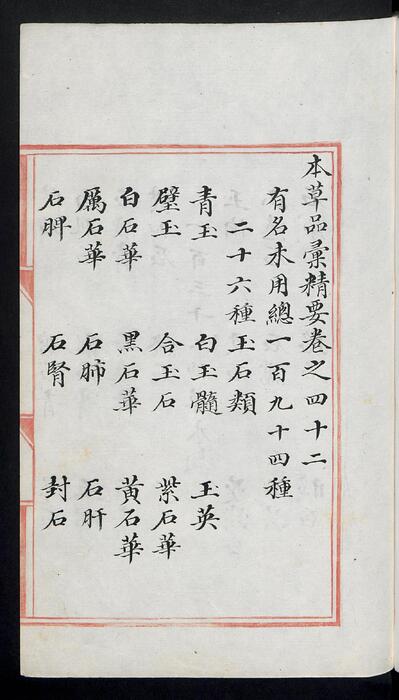 本草品彙精要卷之四十二
有名未用總一百九十四種
二十六種玉石類
青玉 白玉髓 玉英
璧玉 合玉石 紫石華
白石華 黑石華 黃石華
厲石華 石肺 石肝
石脾 石腎 封石